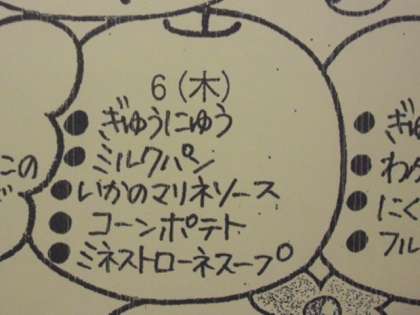 6(木)
●ぎゅうにゅう
●ミルクパン
●いかのマリネソース
●コーンポテト
●ミネストローネスープ
この
●ぎゅ
●わか
●にく
●フル